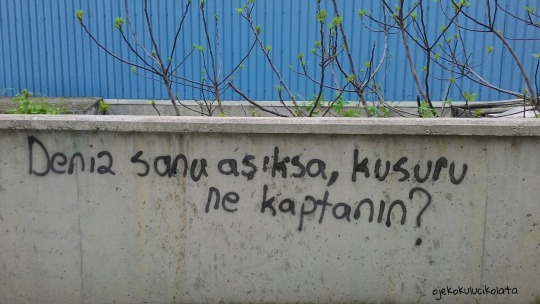 Deniz sana aşıksa, kusuru
ne kaptanın?
ojekokulucikolata